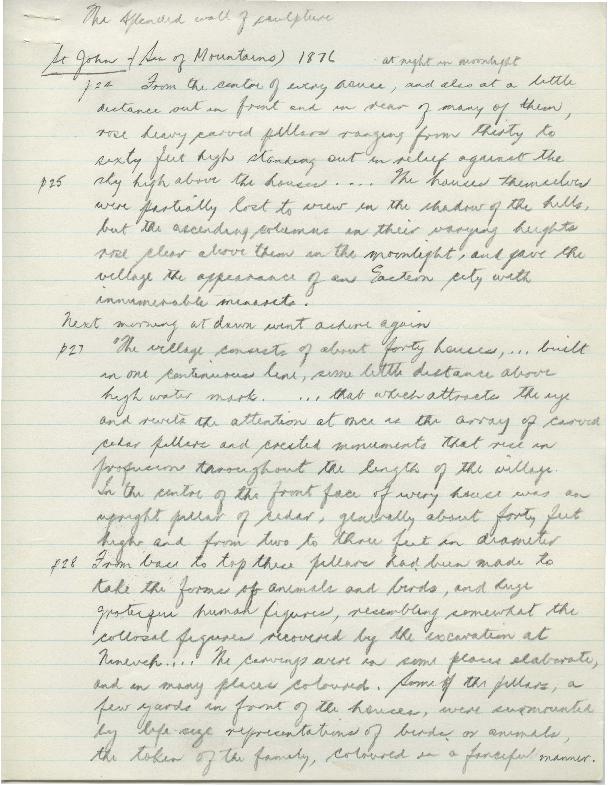 The splendid wall of sculpture
St John (Sea of Mountains) 1876 at night in moonlight
p24 From the centre of every house, and also at a little
distance out in front and in rear of many of them,
rose heavy carved pillars ranging from thirty to
sixty feet high standing out in relief against the
p25 sky high above the houses.... The houses themselves
were partially lost to view in the shadow of the hills,
but the ascending columns in their varying heights
rose clear above them in the moonlight, and gave the
village the appearance of an Eastern city with
innumerable minarets.
Next morning at dawn went ashore again
p27 "The village consists of about forty houses, ... built
in one continuous line, some little distance above
high water mark. ... that which attracts the eye
and rivets the attention at once is the array of carved
cedar pillars and crested monuments that rise in
profusion throughout the length of the village.
In the centre of the front face of every house was an
upright pillar of cedar, generally about forty feet
high and from two to three feet in diameter
p28 From base to top these pillars had been made to
take the forms of animals and birds, and huge
grotesque human figures, resembling somewhat the
collosal figures recovered by the excavation at
Nineveh.... The carvings were in some places elaborate,
and in many places coloured. Some of the pillars, a
few yards in front of the houses, were surmounted
by life-size representations of birds or animals,
the token of the family, coloured in a fanciful manner.